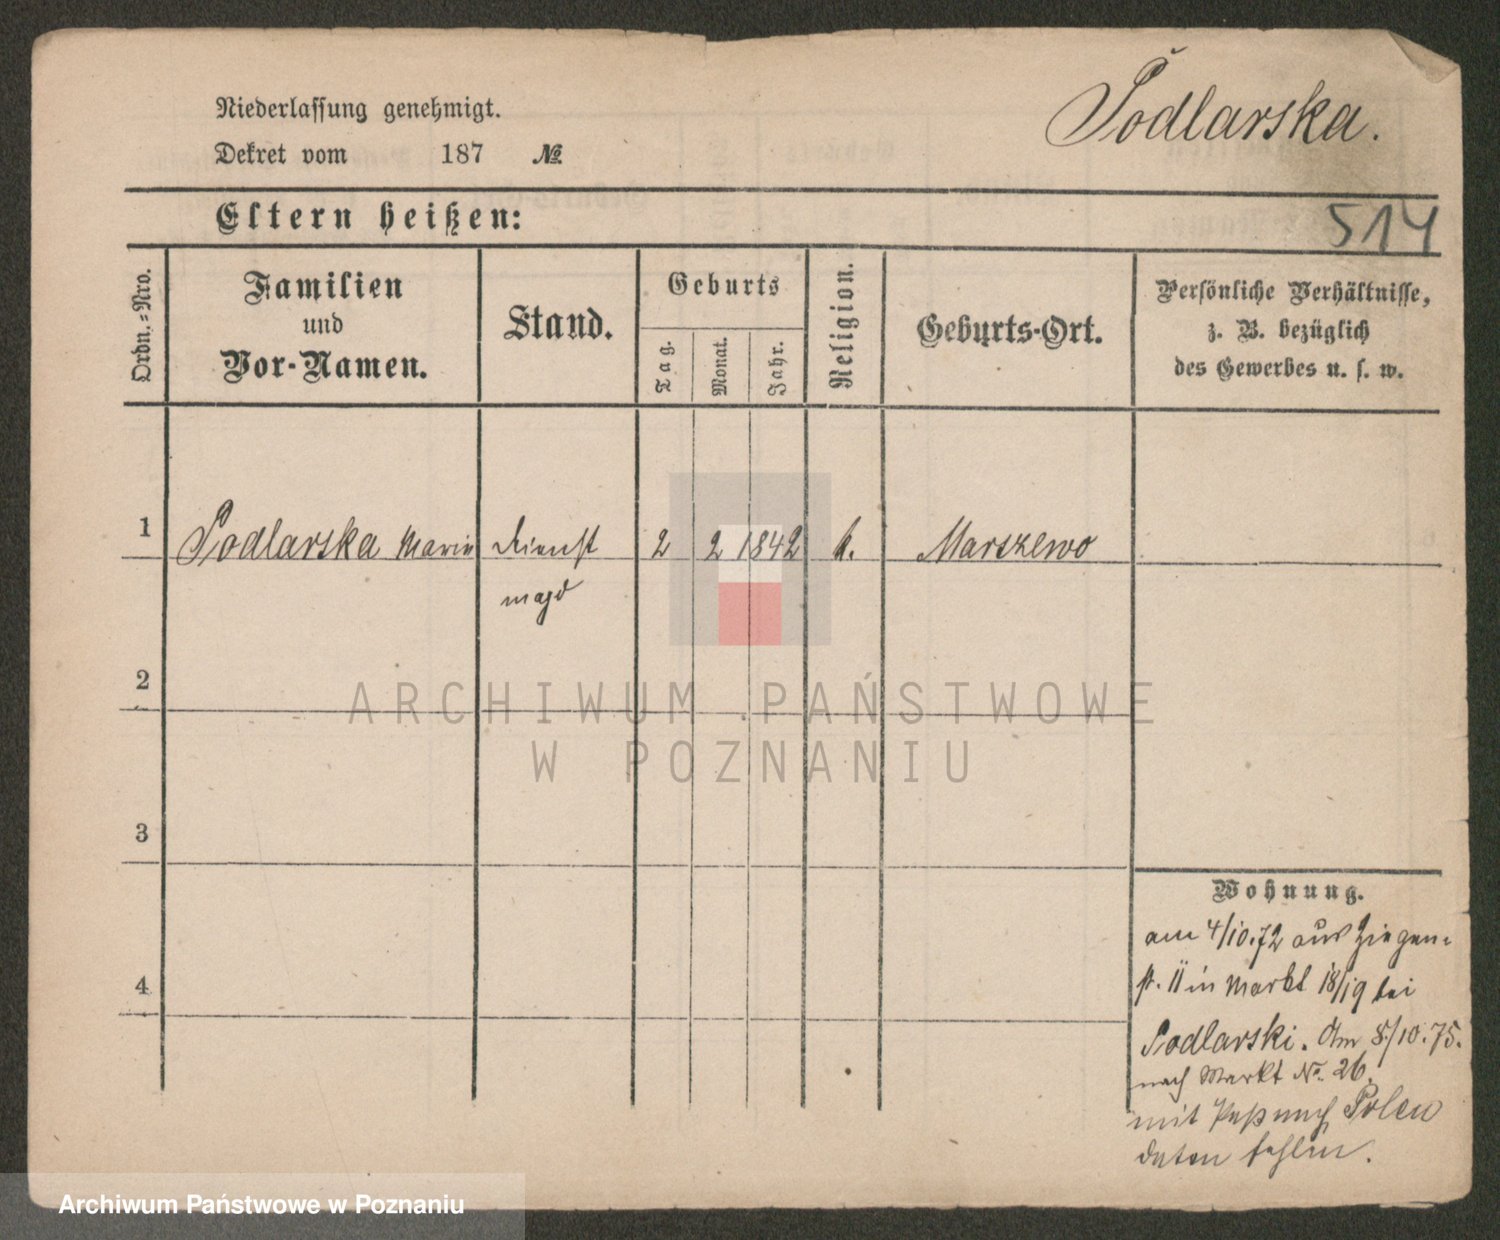 Podlarska.
Niederlassung genehmigt.
Dekret vom 187 №
Eltern heißen:
514
Ordn.-Nro.
Familien
und
Vor-Namen.
Stand.
Geburts
Tag.
Monat.
Jahr.
Religion.
Geburts-Ort.
Persönliche Verhältnisse,
z. B. bezüglich
des Gewerbes u. s. w.
1 Podlarska Marie Dienst 2 2 1842 k. Marszewo
magd
2
3
4
Wohnung.
am 4/10.72 aus Ziegen-
st. 11 in Markt 18/19 bei
Podlarski. Am 8/10.75.
nach Markt No. 26.
mit Paß nach Polen
daten fehlen.
ARCHIWUM PAŃSTWOWE
W POZNANIU
Archiwum Państwowe w Poznaniu